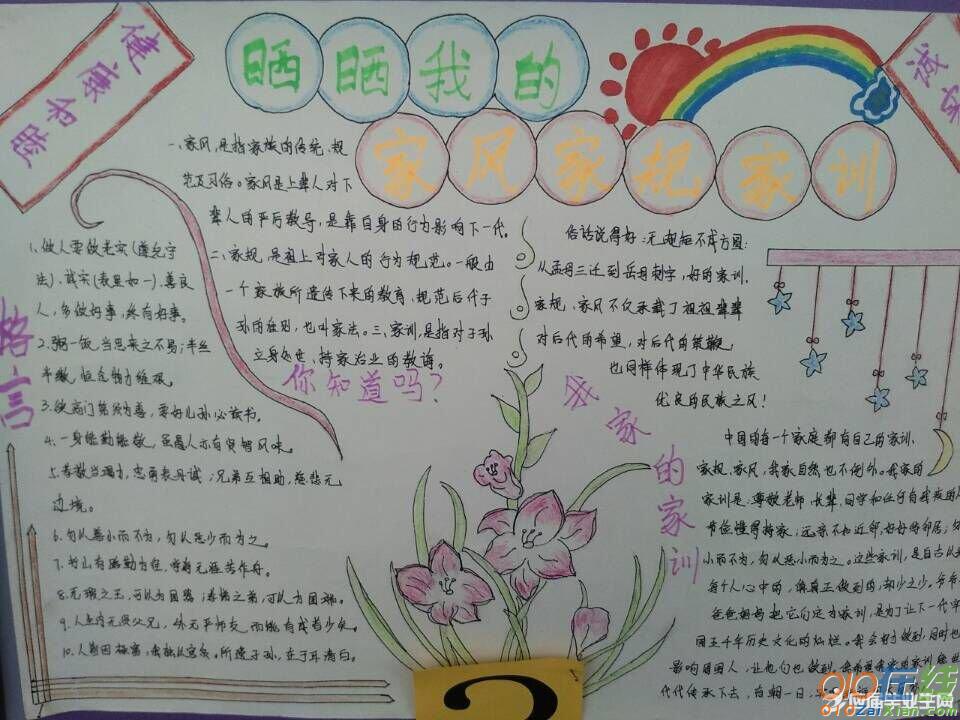 健康和睦
晒晒我的
家风家规家训
诚实
一、家风，是指家族的传统、规
范及习俗。家风是上辈人对下
辈人的严厉教导，是靠自身的行为影响下一代。
二、家规，是祖上对家人的行为规范。一般由
一个家族所遗传下来的教育、规范后代子
孙的准则，也叫家法。三、家训，是指对子孙
立身处世、持家治业的教诲。
你知道吗？
格言
1、做人要做老实(遵纪守
法)、诚实(表里如一)、善良
人，多做好事，终有好事。
2、粥一饭，当思来之不易；半丝
半缕，恒念物力维艰。
3、欲高门第须为善，要好儿孙必读书。
4、一身能勤能敬，虽愚人亦有贤智风味。
5、孝敬当竭力，忠勇表丹诚；兄弟互相助，慈悲无
边境。
6、勿以善小而不为，勿以恶少而为之。
7、书山有路勤为径，学海无涯苦作舟。
8、无瑕之玉，可以为国器；孝悌之弟，可以为国瑞。
9、人生内无贤父兄，外无严师友，而能有成者少矣。
10、
所遗子孙，在于耳清白。
俗话说得好：无规矩不成方圆；
从孟母三迁到岳母刺字，好的家训、
家规、家风不仅承载了祖祖辈辈
对后代的希望，对后代的鞭策，
也同样体现了中华民族
优良的民族之风！
我家的家训
中国的每一个家庭都有自己的家训、
家规、家风，我家自然也不例外。我家的
家训是：尊敬老师、长辈、同学和任何
节俭懂得持家；远亲不如近邻，好好待邻居；
小而不为，勿以恶小而为之。这些家训，是自古以
每个人心中的，但真正做到的，却少之少。
爸爸妈妈把它们定为家训，是为了让下一代
国五千年历史文化的灿烂。我会努力做到，同时也
影响周围人，让他们也做到。
代代传承下去，
?
910在线
910ZaiXian.com
应届毕业生网